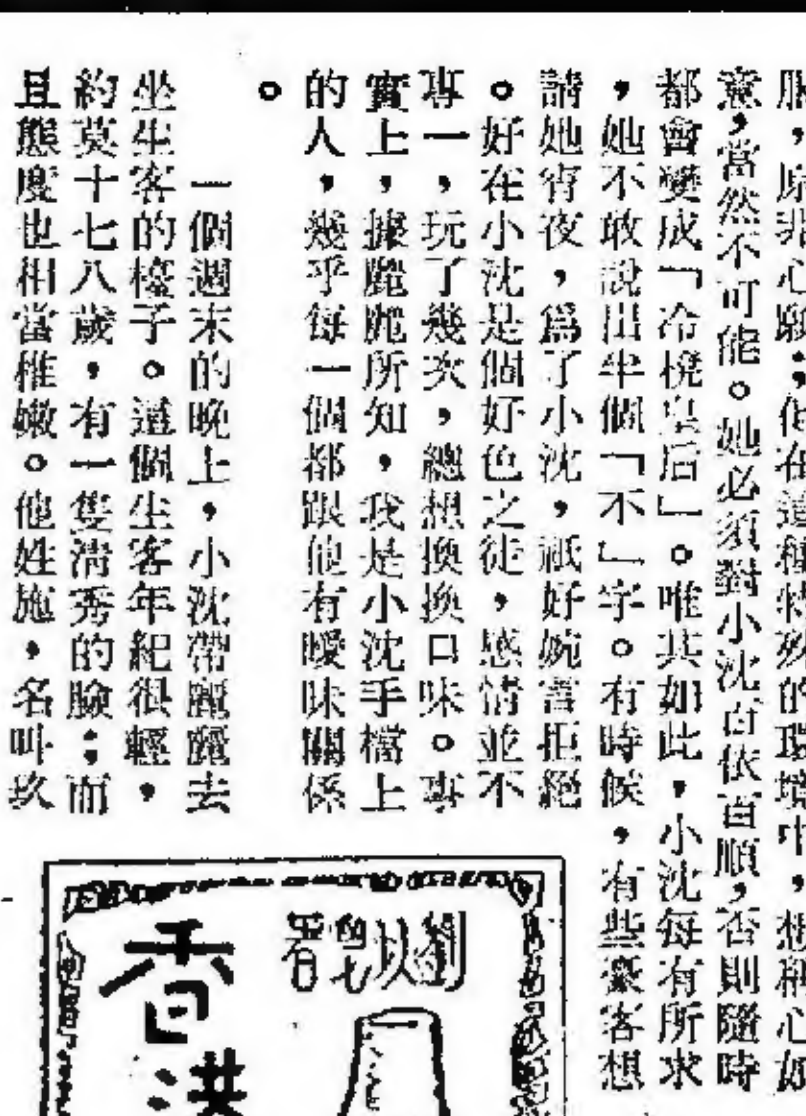 服，原非心願；但在這種特殊的環境中，想稱心如
意，當然不可能。她必須對小沈百依百順，否則隨時
都會變成「冷櫈皇后」。唯其如此，小沈每有所求
，她不敢說出半個「不」字。有時候，有些豪客想
請她宵夜，爲了小沈，祇好婉言拒絕
。好在小沈是個好色之徒，感情並不
專一，玩了幾次，總想換換口味。事
實上，據麗麗所知，我是小沈手檔上
的人，幾乎每一個都跟他有曖昧關係
。
一個週末的晚上，小沈帶麗麗去
坐生客的檯子。這個生客年紀很輕，
約莫十七八歲，有一隻清秀的臉；而
且態度也相當稚嫩。他姓施，名叫玖
劉以鬯著
香港